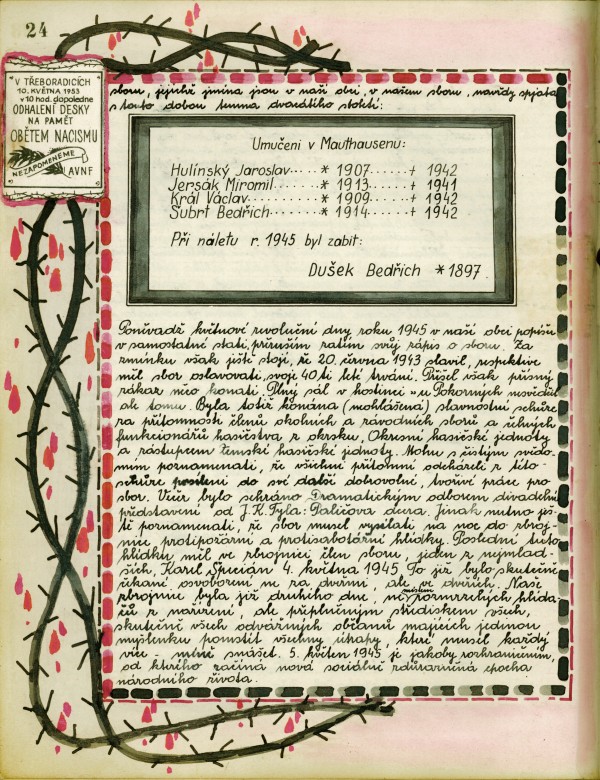 24
V TŘEBORADICÍCH
10. KVĚTNA 1953
v 10 hod. dopoledne
ODHALENÍ DESKY
NA PAMĚŤ
OBĚTEM NACISMU
NEZAPOMENEME
sboru, jejichž jména jsou v naší obci, v našem sboru, navždy spjata
s touto dobou temna dvacátého století:
Umučeni v Mauthausenu:
Hulínský Jaroslav..... * 1907...... + 1942
Jersák Miromil....... * 1913...... + 1941
Král Václav.......... * 1909...... + 1942
Šubrt Bedřich........ * 1914...... + 1942
Při náletu r. 1945 byl zabit:
Dušek Bedřich * 1897.
Poněvadž květnové revoluční dny roku 1945 v naší obci popíšu
v samostatné stati, přeruším zatím svůj zápis o sboru. Za
zmínku však ještě stojí, že 20. června 1943 slavil, respektive
měl sbor oslavovati, svoje 40ti leté trvání. Přišel však přísný
zákaz něco konati. Plný sál v hostinci "u Pokorných nesvědčil
ale tomu. Byla totiž konána (neohlášená) slavnostní schůze
za přítomnosti členů okolních a závodních sborů a čelných
funkcionářů hasičstva z okrsku, Okresní hasičské jednoty
a zástupcem Zemské hasičské jednoty. Mohu s čistým svědo-
mím poznamenati, že všichni přítomní odcházeli z této-
schůze posíleni do své další dobrovolné, tvořivé práce pro
sbor. Večer bylo sehráno Dramatickým odborem divadelní
představení od J. K. Tyla: Paličova dcera. Jinak nutno ješ-
tě poznamenati, že sbor musel vysílati na noc do zbroj-
nice protipožární a protisabotážní hlídky. Poslední tuto
hlídku měl ve zbrojnici člen sboru, jeden z nejmlad-
ších, Karel Špecián 4. května 1945. To již bylo skutečné
čekání osvobození ne za dveřmi, ale ve dveřích. Naše
zbrojnice byla již druhého dne, ne místem pozamrzelých hlída-
čů z nařízení, ale přeplněným střediskem všech,
skutečně všech odvážných občanů majících jedinou
myšlenku pomstít všechny útrapy, které musil každý
více - méně snášet. 5. květen 1945 je jakoby rozhraničením,
od kterého začíná nová sociální zdůrazněná epocha
národního života.